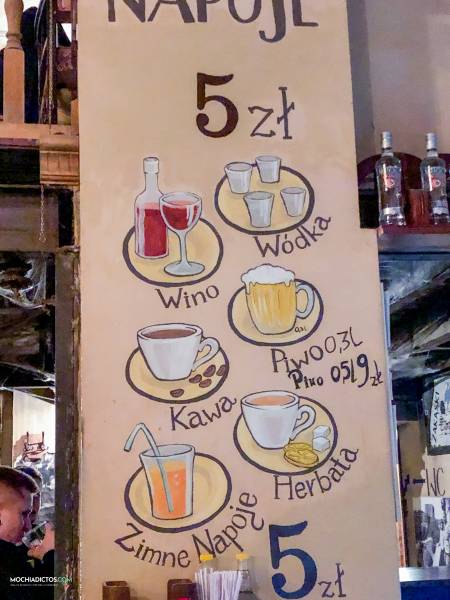 NAPOJE
5 zł
Wino
Wódka
Piwo 0,3L
0,3L
Piwo 0,5l 9 zł
Kawa
Herbata
Zimne Napoje
5 zł
WC
MOCHIADICTOS.COM